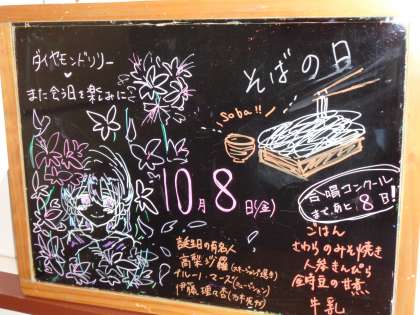 ダイヤモンドリリー
♥
また会う日を楽しみに
そばの日
Soba!!
10月8日(金)
合唱コンクール
まであと8日!
誕生日の有名人
高梨沙羅(スキージャンプ選手)
ブルーノ・マーズ(ミュージシャン)
伊藤理々杏(乃木坂46)
ごはん
さわらのみそ焼き
人参きんぴら
金時豆の甘煮
牛乳